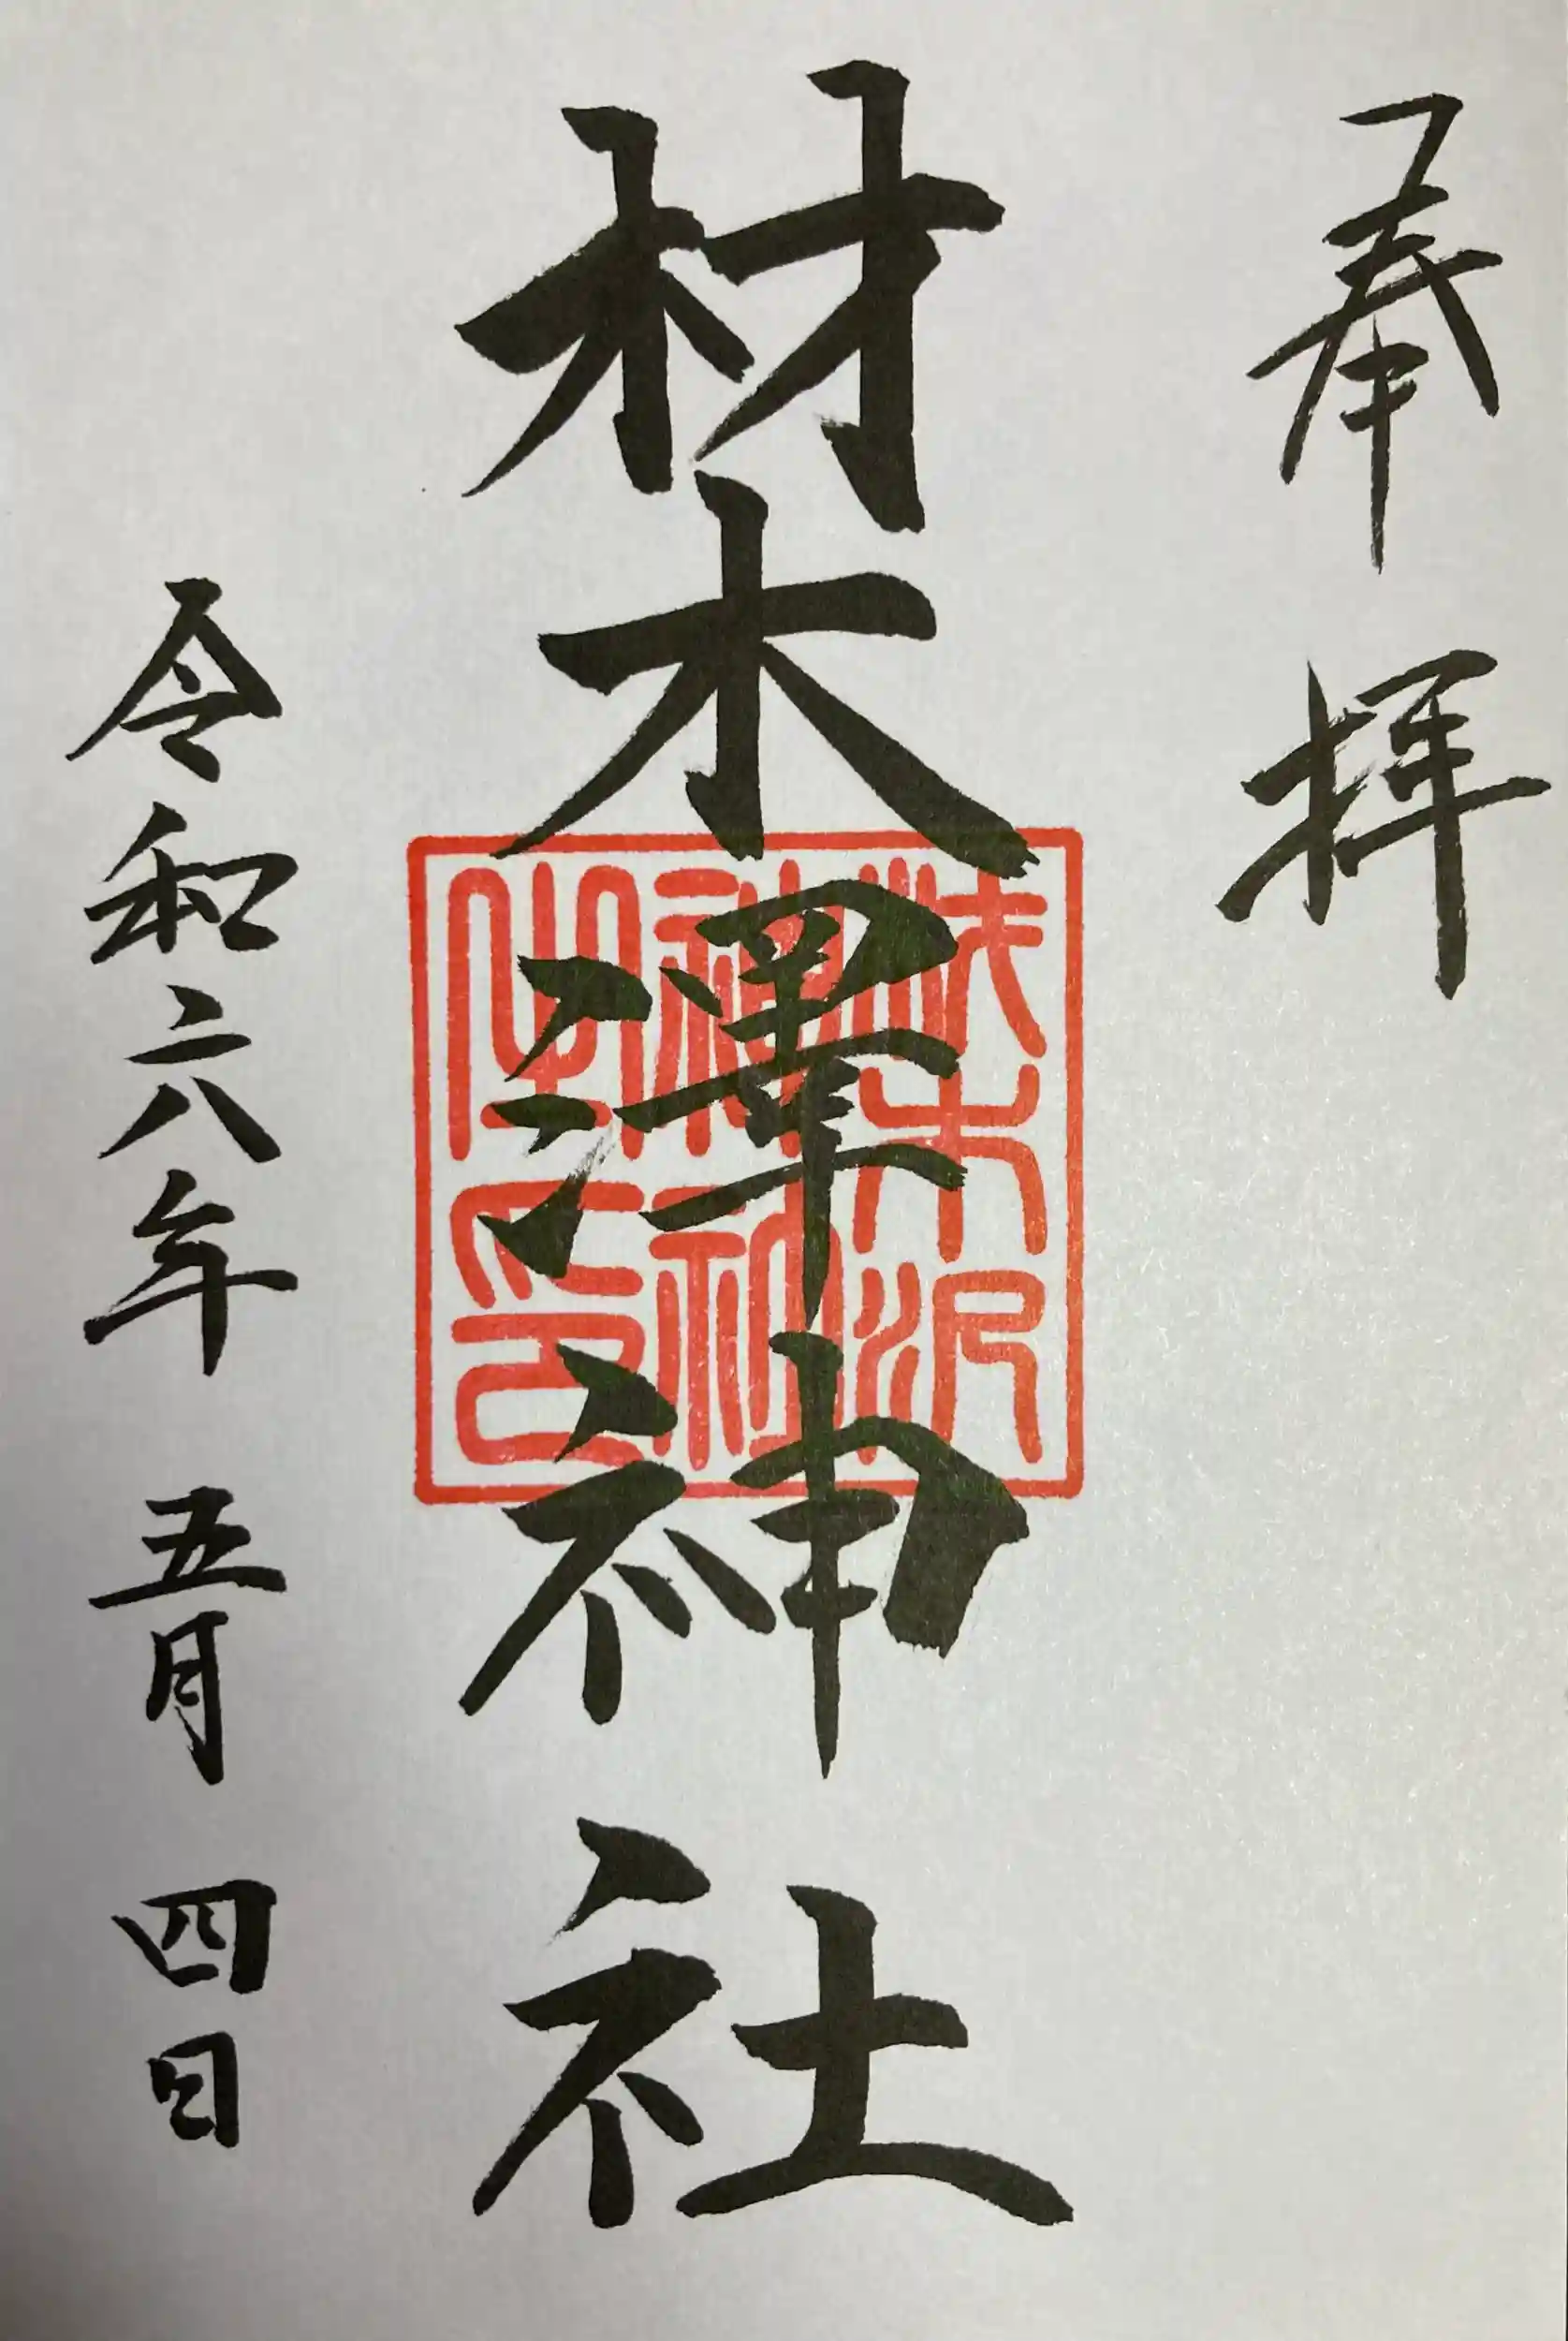 奉拝
材木澤神社
令和六年五月四日
材木沢
神社
之印